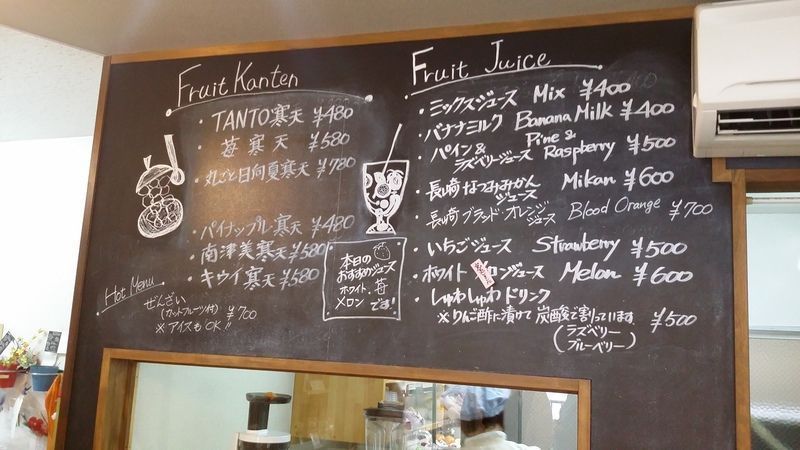 Fruit Kanten
・TANTO寒天 ¥480
・苺寒天 ¥580
・丸ごと日向夏寒天 ¥780
・パイナップル寒天 ¥480
・南津美寒天 ¥580
・キウイ寒天 ¥580
Hot Menu
ぜんざい
(カットフルーツ付) ¥700
※アイスもOK!!
本日の
おすすめジュース
ホワイト、苺
メロン です!
Fruit Juice
・ミックスジュース Mix ¥400
・バナナミルク Banana Milk ¥400
・パイン&ラズベリージュース Pine & Raspberry ¥500
・長崎なつみみかんジュース Mikan ¥600
・長崎ブラッド・オレンジジュース Blood Orange ¥700
・いちごジュース Strawberry ¥500
・ホワイトメロンジュース Melon ¥600
・しゅわしゅわドリンク
※りんご酢に漬けて炭酸で割っています ¥500
(ラズベリー
ブルーベリー)